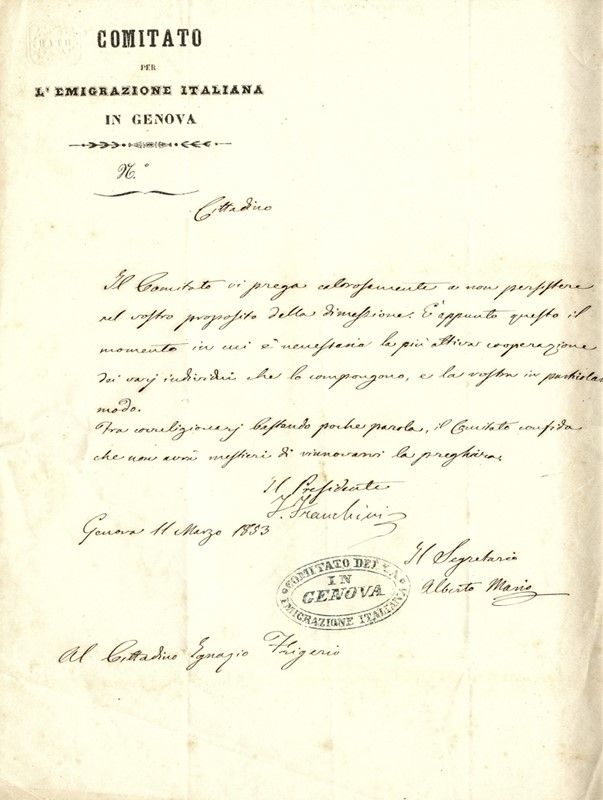 COMITATO
PER
L'EMIGRAZIONE ITALIANA
IN GENOVA
N.º
Cittadino
Il Comitato vi prega calorosamente a non persistere
nel vostro proposito della dimessione. E' appunto questo il
momento in cui è necessaria la più attiva cooperazione
dei varj individui che lo compongono, e la vostra in particolar
modo.
Fra correligionarj bastando poche parole, il Comitato confida
che non avrà mestieri di rinnovarvi la preghiera.
Il Presidente
F. Franchini
Genova 11 Marzo 1853
Il Segretario
Alberto Mario
COMITATO DELLA
IN
GENOVA
EMIGRAZIONE ITALIANA
Al Cittadino Ignazio Frigerio